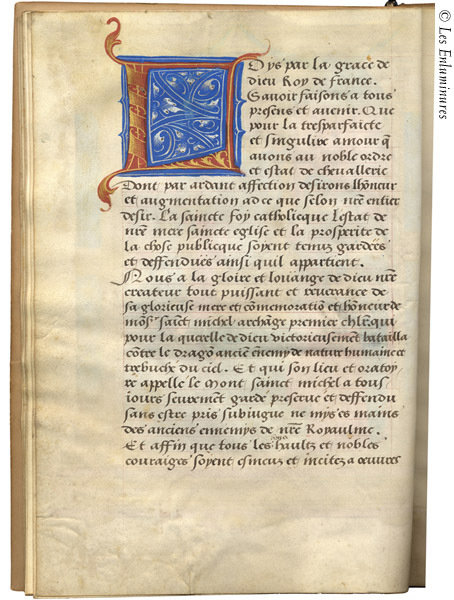 Loys par la grace de
dieu Roy de france.
Sauoir faisons a tous
presens et auenir. Que
pour la tresparfaicte
et singuliere amour q̃
auons au noble ordre
et estat de cheuallerie
Dont par ardant affection desirons lhõneur
et augmentation ad ce que selon nr̃e entier
desir. La saincte foy catholicque Lestat de
nr̃e mere saincte eglise et la prosperite de
la chose publicque soyent tenus gardees
et deffendues ainsi quil appartient.
Nous a la gloire et louange de dieu nr̃e
createur tout puissant et reuerance de
sa glorieuse mere et cõmemoratiõ et hõneur de
mõs.r sainct michel archãge premier chl̃r qui
pour la querelle de dieu victorieusement batailla
cõtre le dragõ anciẽ ẽnemy de natur humaine et
trebucha du ciel. Et qui son lieu et oratoy
re appelle le Mont sainct michel a tous
iours seurement garde preserue et deffendu
sans estre pris subiugue ne mys es mains
des anciens ennemys de nr̃e Royaulme.
Et affin que tous les haultz et nobles
couraiges soyent esmeuz et incitez a oeuures
© Les Enluminures